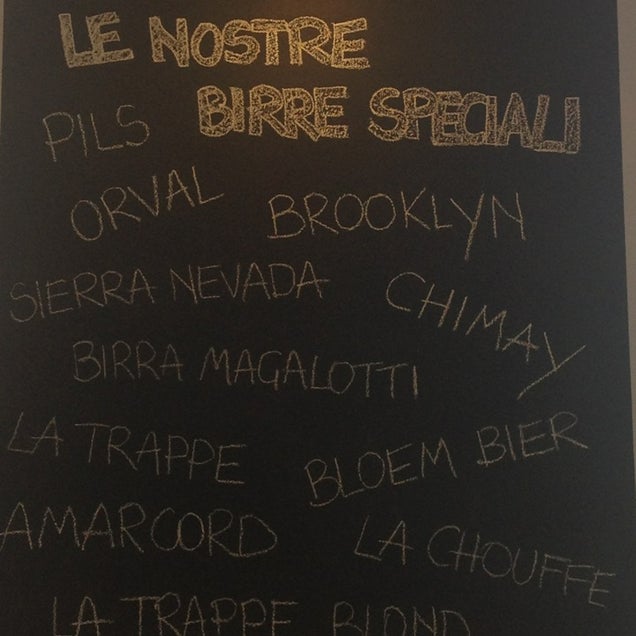 LE NOSTRE
BIRRE SPECIALI
PILS
ORVAL BROOKLYN
SIERRA NEVADA CHIMAY
BIRRA MAGALOTTI
LA TRAPPE BLOEM BIER
AMARCORD LA CHOUFFE
LA TRAPPE BLOND